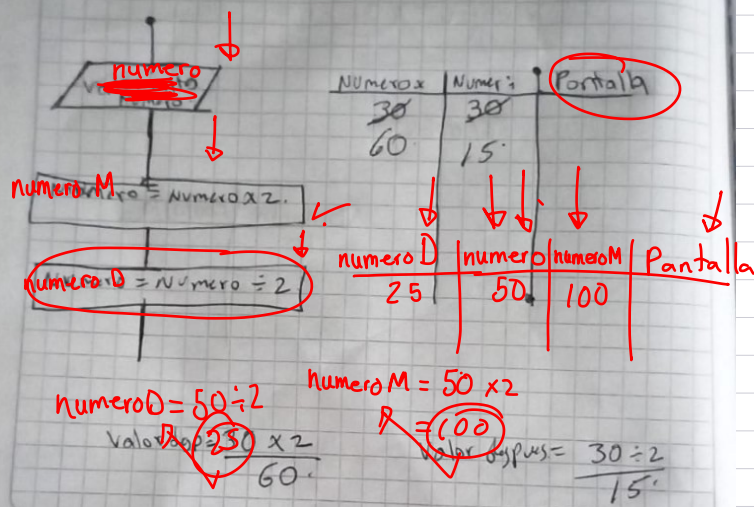 numero
numeroM = Numero x 2.
numeroD = Numero ÷ 2
Numerox Numer÷ Pantalla
30 30
60 15.
numeroD numero numeroM Pantalla
25 50 100
numeroD = 50÷2
= 25
numeroM = 50 x2
= 100
30 x 2
60.
Valor despues= 30÷2
15.